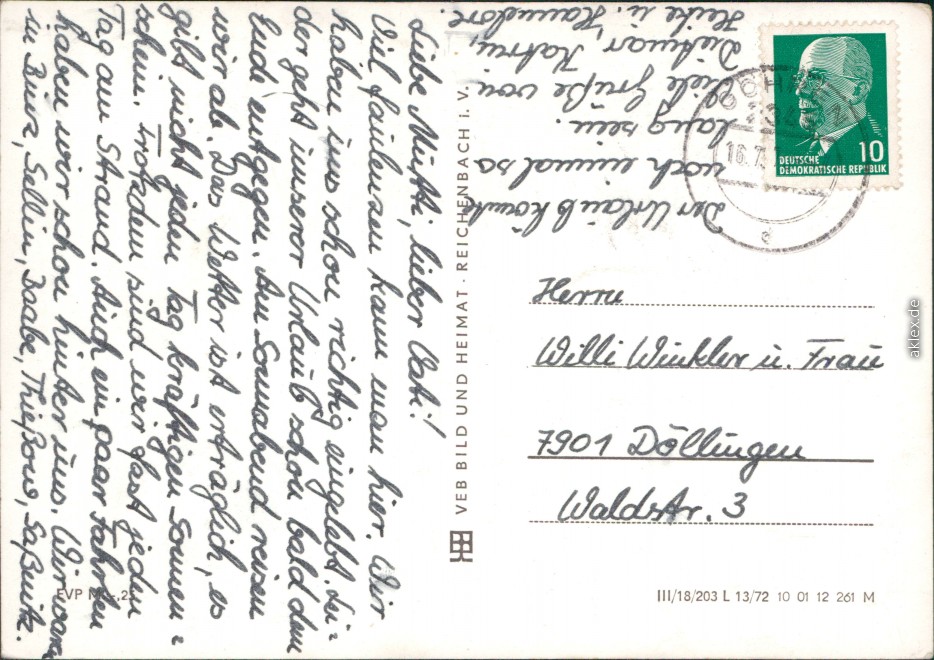 Liebe Mutti, lieber Vati!
Viel faulenzen kann man hier. Wir
haben uns schon richtig eingelebt. Lei=
der geht unserer Urlaub schon bald dem
Ende entgegen. Am Sonnabend reisen
wir ab. Das Wetter ist erträglich, es
gibt nicht jeden Tag kräftigen Sonnen=
schein. Trotzdem sind wir fast jeden
Tag am Strand. Auch ein paar Fahrten
haben wir schon hinter uns. Wir waren
in Binz, Sellin, Baabe, Thießow, Saßnitz.
Der Urlaub könnte
noch einmal so
lang sein.
Viele Grüße von
Dietmar, Katrin,
Heike u. Hannelore.
VEB BILD UND HEIMAT · REICHENBACH i. V.
DEUTSCHE
DEMOKRATISCHE REPUBLIK
10
16.7.
Herrn
Willi Winkler u. Frau
7901 Döllingen
Waldstr. 3
EVP M -,25
III/18/203 L 13/72 10 01 12 261 M
aklex.de